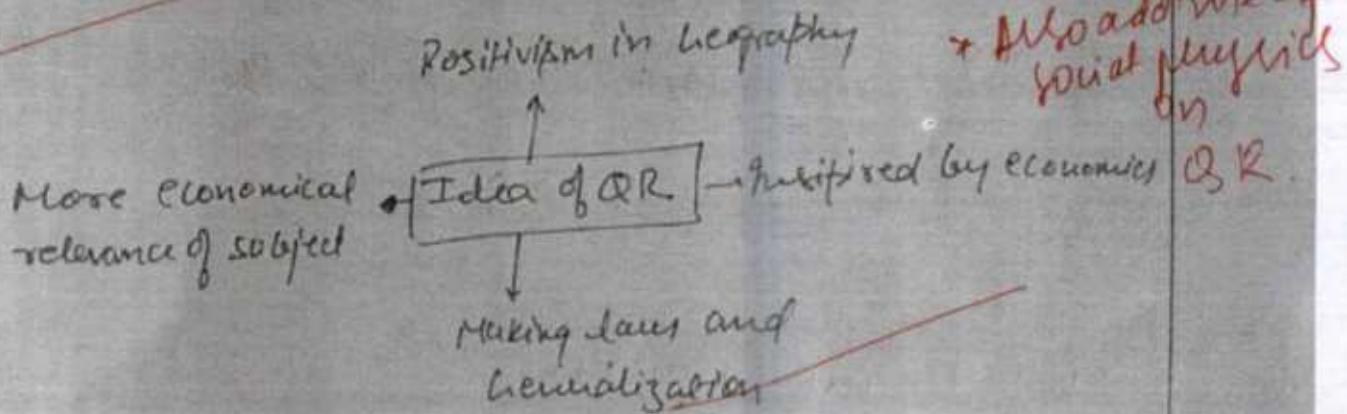 Positivism in Geography
* Also add
social physics
in
QR.
More economical
relevance of subject
Idea of QR
Inspired by economics
Making laws and
Generalization